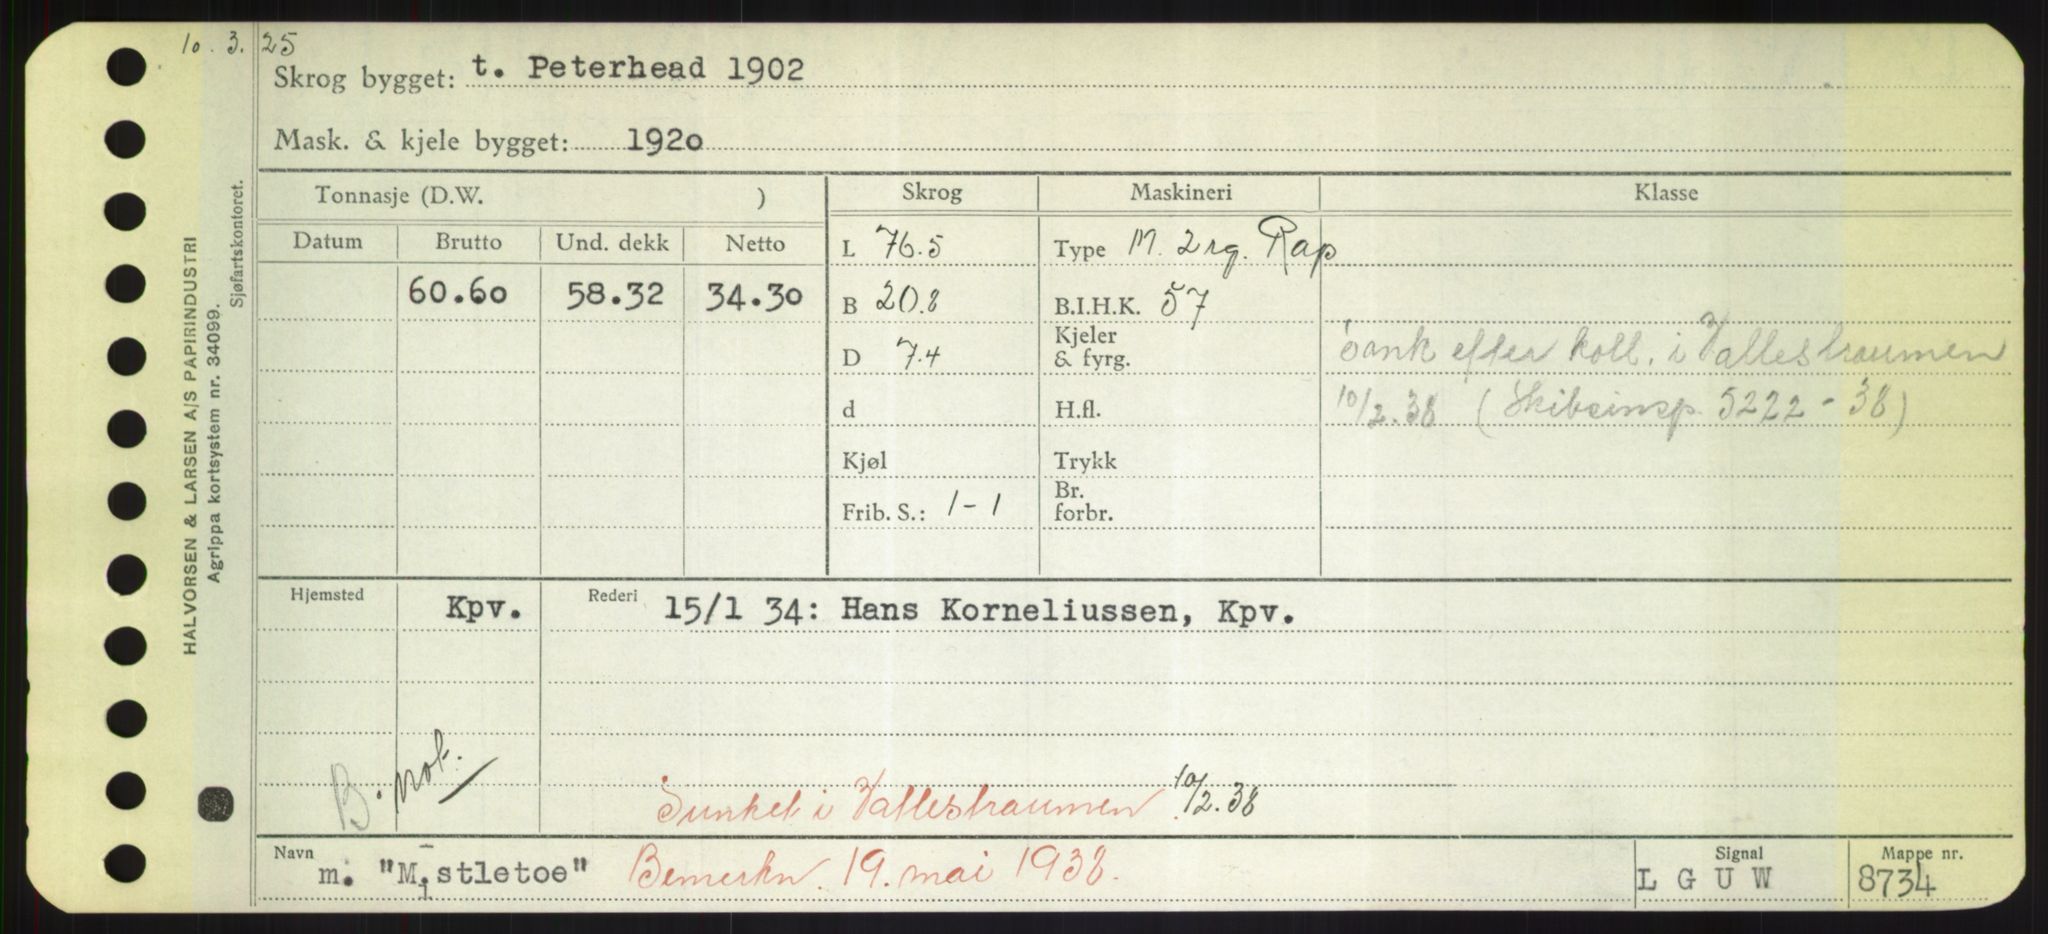 10. 3. 25
Skrog bygget: t. Peterhead 1902
Mask. & kjele bygget: 1920
Tonnasje (D.W. ) Skrog Maskineri Klasse
Datum Brutto Und. dekk Netto L 76.5 Type M. 2 rg. Rap
60.60 58.32 34.30 B 20.8 B.I.H.K. 57
D 7.4 Kjeler & fyrg. Sank efter koll. i Vallestraumen
d H.fl. 10/2.38 (Skibsinsp. 5222-38)
Kjøl Trykk
Frib. S.: 1-1 Br. forbr.
Hjemsted Kpv. Rederi 15/1 34: Hans Korneliussen, Kpv.
B. not.
Sunket i Vallestraumen 10/2.38
Navn m. "Mistletoe" Bemerkn. 19. mai 1938. Signal L G U W Mappe nr. 8734
HALVORSEN & LARSEN A/S PAPIRINDUSTRI
Agrippa kortsystem nr. 34099.
Sjøfartskontoret.